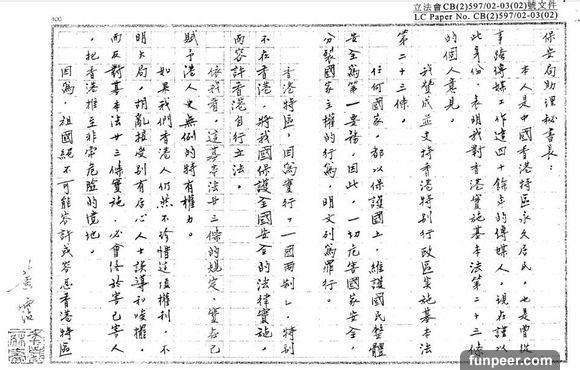 立法會CB(2)597/02-03(02)號文件
LC Paper No. CB(2)597/02-03(02)
保安局助理秘書長：
本人是中國香港特區永久居民，也是曾從
事跨傳媒工作達四十餘年的傳媒人，現在謹以
此身份，表明我對香港實施基本法第二十三條
的個人意見。
我贊成並支持香港特別行政區實施基本法
第二十三條。
任何國家，都以保護國土，維護國民整體
安全為第一要務，因此，一切危害國家安全，
分裂國家主權的行為，明文列為罪行。
香港特區，因為實行「一國兩制」，特別
不在香港，將我國保護全國安全的法律實施，
而容許香港自行立法。
依我看，這基本法廿三條的規定，實在已
賦予港人史無例的特有權力。
如果我們香港人仍然不珍惜這項權利，不
明大局，胡亂接受別有居心人士誤導和唆擺，
而反對基本法廿三條實施，必會終於害己害人
，把香港推至非常危險的境地。
因為，祖國絕不可能容許或容忍香港特區
funpeer.com